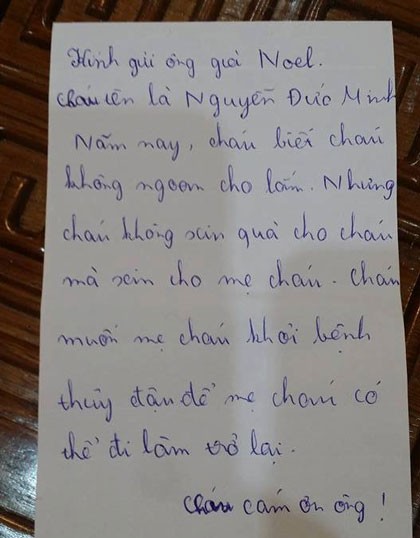 Kính gửi ông già Noel.
Cháu tên là Nguyễn Đức Minh
Năm nay, cháu biết cháu
không ngoan cho lắm. Nhưng
cháu không xin quà cho cháu
mà xin cho mẹ cháu. Cháu
muốn mẹ cháu khỏi bệnh
thủy đậu để mẹ cháu có
thể đi làm trở lại.
Cháu cám ơn ông!